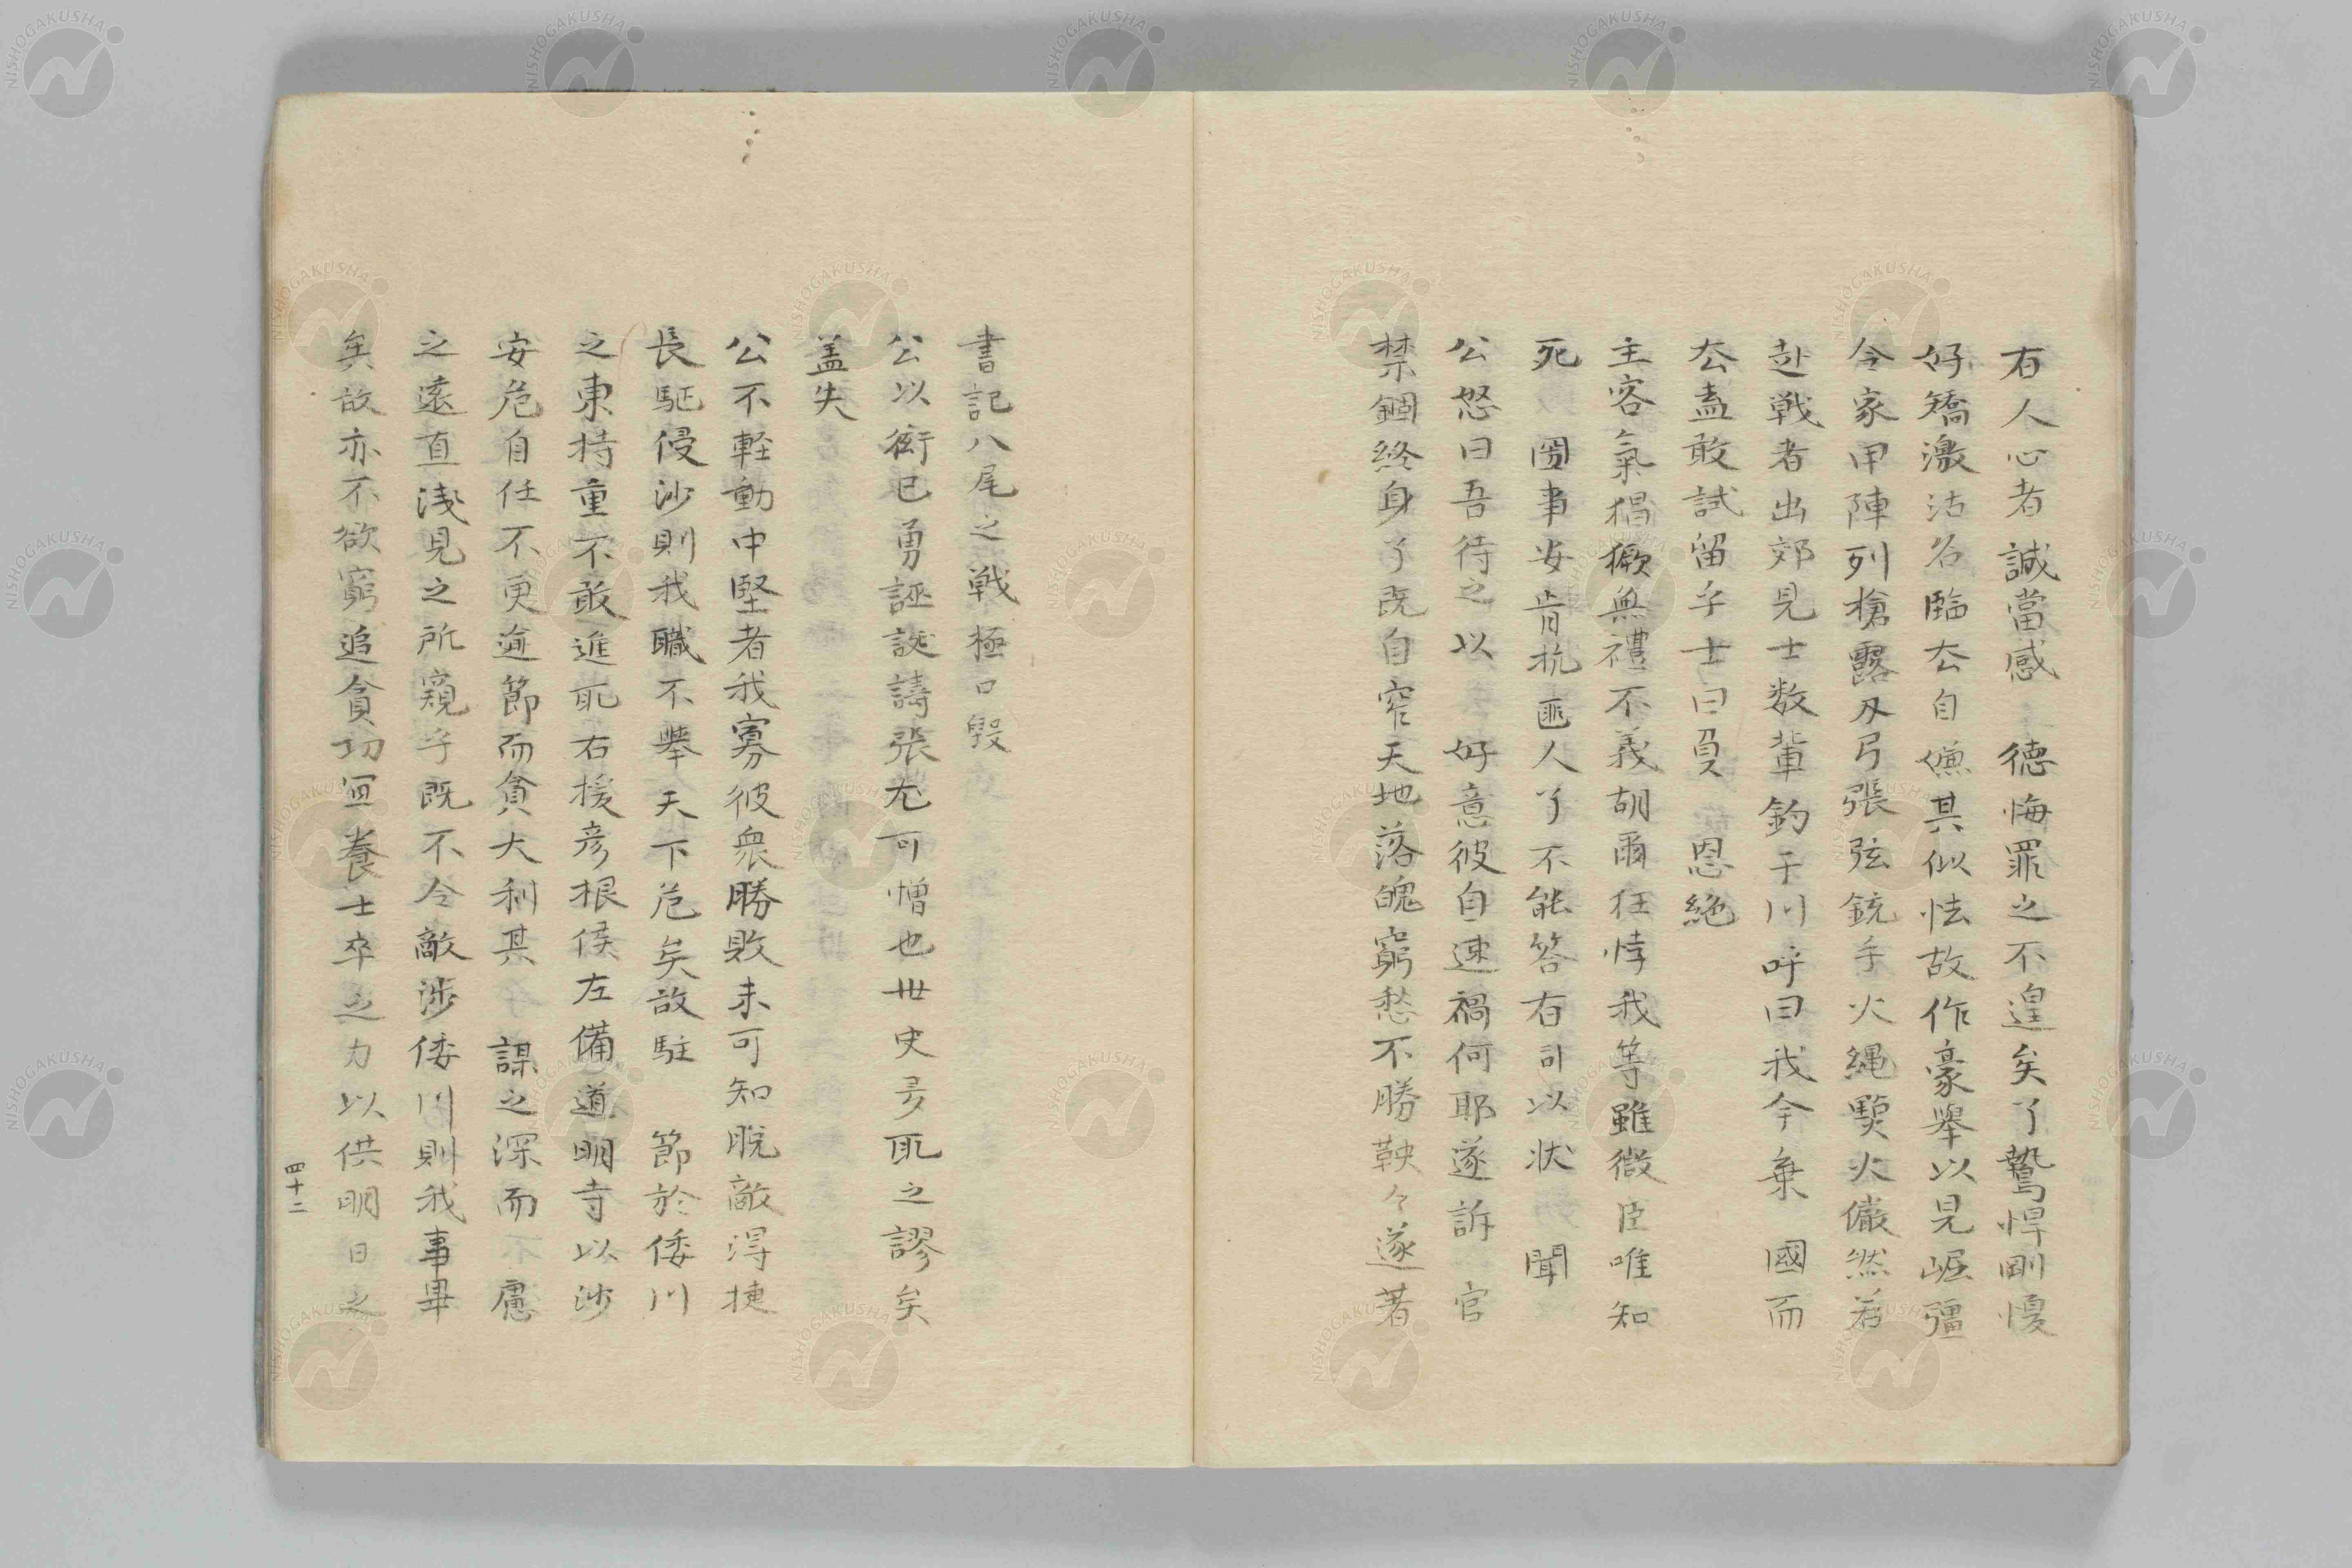 有人心者誠當感　德悔罪之不遑矣了鷙悍剛愎
好矯激沽名臨去自嫌其似怯故作豪舉以見崛彊
令家甲陣列槍露刃弓張弦銃手火繩爇火儼然若
赴戦者出郊見士数輩釣于川呼曰我今棄　國而
去盍敢試留乎士曰負　恩絶
主容氣猖獗無禮不義胡爾狂悖我等雖微臣唯知
死　國事安肯抗匪人了不能答有司以状　聞
公怒曰吾待之以　好意彼自速禍何耶遂訴　官
禁錮終身了既自窄天地落魄窮愁不勝鞅々遂著
書記八尾之戦極口毀
公以衒已勇誣誕譸張尤可憎也世史多取之謬矣
盖失
公不軽動中堅者我寡彼衆勝敗未可知脱敵得捷
長駈侵沙則我職不舉天下危矣故駐　節於倭川
之東持重不敢進取右援彦根侯左備道明寺以沙
安危自任不更逾節而貪大利其　謀之深而　慮
之遠直浅見之所窺乎既不令敵渉倭川則我事畢
矣故亦不欲窮追貪功宜養士卒之力以供明日之
四十二
NISHOGAKUSHA